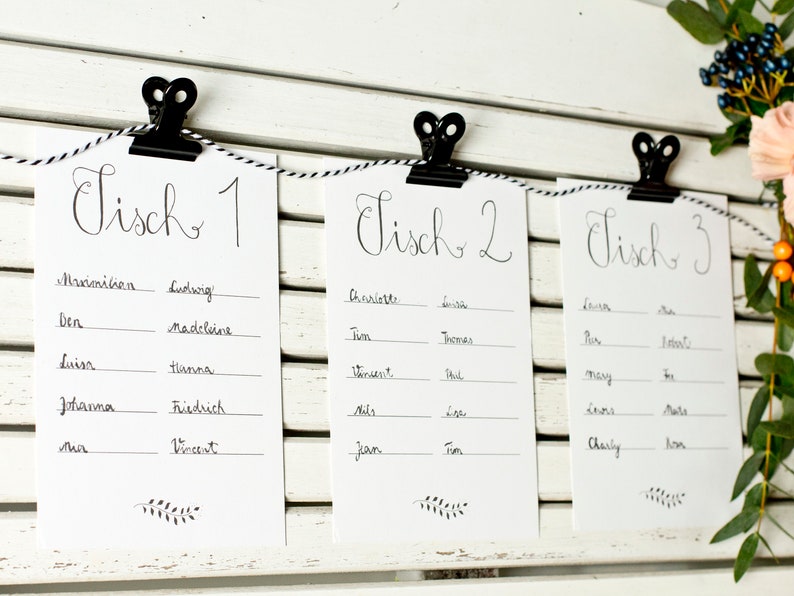 Tisch 1
Maximilian Ludwig
Ben Madeleine
Luisa Hanna
Johanna Friedrich
Mia Vincent
Tisch 2
Charlotte Luisa
Tim Thomas
Vincent Phil
Nils Lisa
Jean Tim
Tisch 3
Laura Mia
Peer Robert
Mary
Lewis Mats
Charly